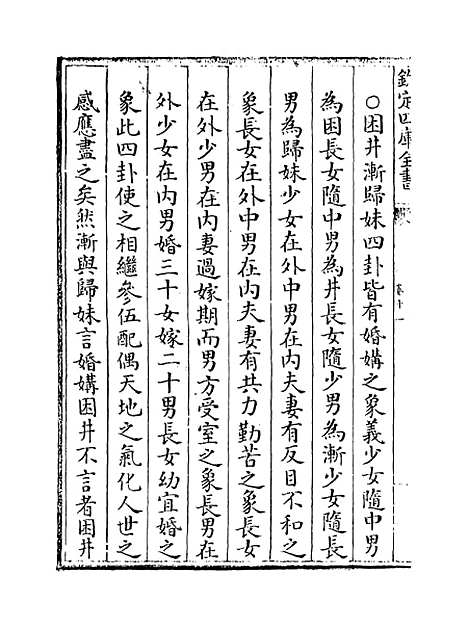 欽定四庫全書
卷十一
○困井漸歸妹四卦皆有婚媾之象義少女隨中男
為困長女隨中男為井長女隨少男為漸少女隨長
男為歸妹少女在外中男在内夫妻有反目不和之
象長女在外中男在内夫妻有共力勤苦之象長女
在外少男在内妻過嫁期而男方受室之象長男在
外少女在内男婚三十女嫁二十男長女幼宜婚之
象此四卦使之相繼參伍配偶天地之氣化人世之
感應盡之矣然漸與歸妹言婚媾困井不言者困井